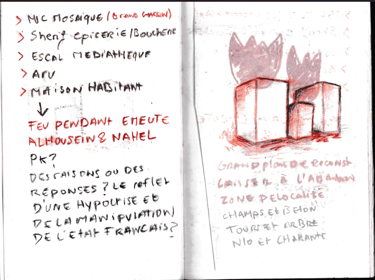 > MJC MOSAIQUE (
> Sherif EPICERIE/BOUCHERIE
> ESCAL MEDIATHEQUE
> AFU
> MAISON HABITANT
FEU PENDANT EMEUTE
ALHOUSEIN & NAHEL
PK?
DES RAISONS OU DES
REPONSES? LE REFLET
D'UNE HYPOCRISIE ET
DE LA MANIPULATION
DE L'ETAT FRANCAIS?
GRAND PLAN DE RECONST
LAISSER À L'ABANDON
ZONE DELOCALISÉ
CHAMPS ET BETON
TOURS ET ARBRE
NIO ET CHARANTE